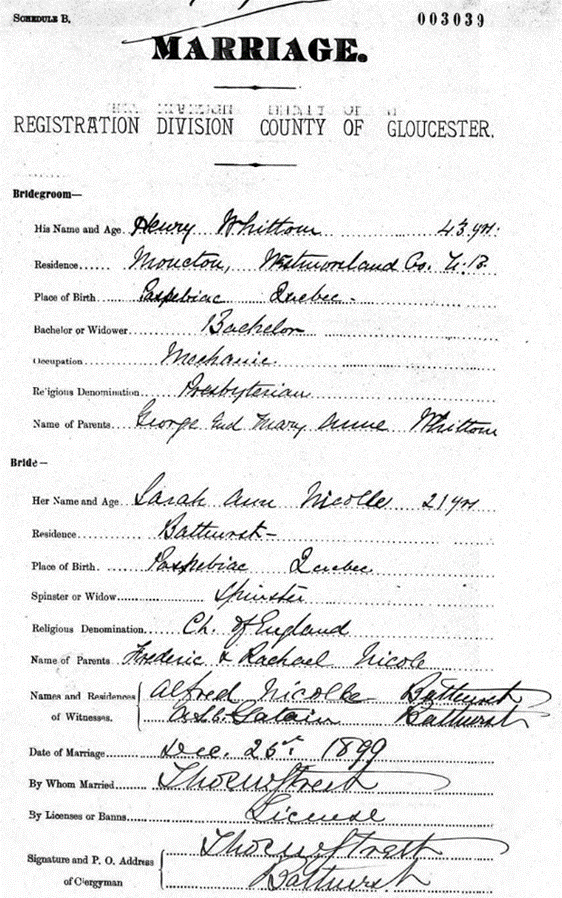 SCHEDULE B. 003039
MARRIAGE.
REGISTRATION DIVISION COUNTY OF GLOUCESTER.
Bridegroom—
His Name and Age Henry Whittom 43 yrs.
Residence Moncton, Westmorland Co. N.B.
Place of Birth Paspebiac Quebec.
Bachelor or Widower Bachelor
Occupation Mechanic
Religious Denomination Presbyterian
Name of Parents George and Mary Anne Whittom
Bride—
Her Name and Age Sarah Ann Nicolle 21 yrs
Residence Bathurst
Place of Birth Paspebiac Quebec
Spinster or Widow Spinster
Religious Denomination Ch. of England
Name of Parents Frederic & Rachael Nicole
Names and Residences Alfred Nicolle Bathurst
of Witnesses. Bathurst
Date of Marriage Dec. 25th 1899
By Whom Married
By Licenses or Banns License
Signature and P. O. Address
of Clergyman Bathurst